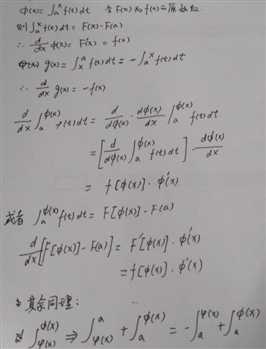 Φ(x) = ∫ₐˣ f(t)dt  令 F(x) 为 f(x) 一原函数
则 ∫ₐˣ f(t)dt = F(x) - F(a)
∴ d/dx Φ(x) = F'(x) = f(x)
g(x) = ∫ₓᵃ f(t)dt = -∫ₐˣ f(t)dt
∴ d/dx g(x) = -f(x)
d/dx ∫ₐ^φ(x) f(t)dt = d/dφ(x) · dφ(x)/dx ∫ₐ^φ(x) f(t)dt
= [d/dφ(x) ∫ₐ^φ(x) f(t)dt] · dφ(x)/dx
= f[φ(x)] · φ'(x)
或者 ∫ₐ^φ(x) f(t)dt = F[φ(x)] - F(a)
d/dx [F[φ(x)] - F(a)] = F'[φ(x)] · φ'(x)
= f[φ(x)] · φ'(x)
同理:
∫_ψ(x)^φ(x) ⇒ ∫_ψ(x)^a + ∫ₐ^φ(x) = -∫ₐ^ψ(x) + ∫ₐ^φ(x)